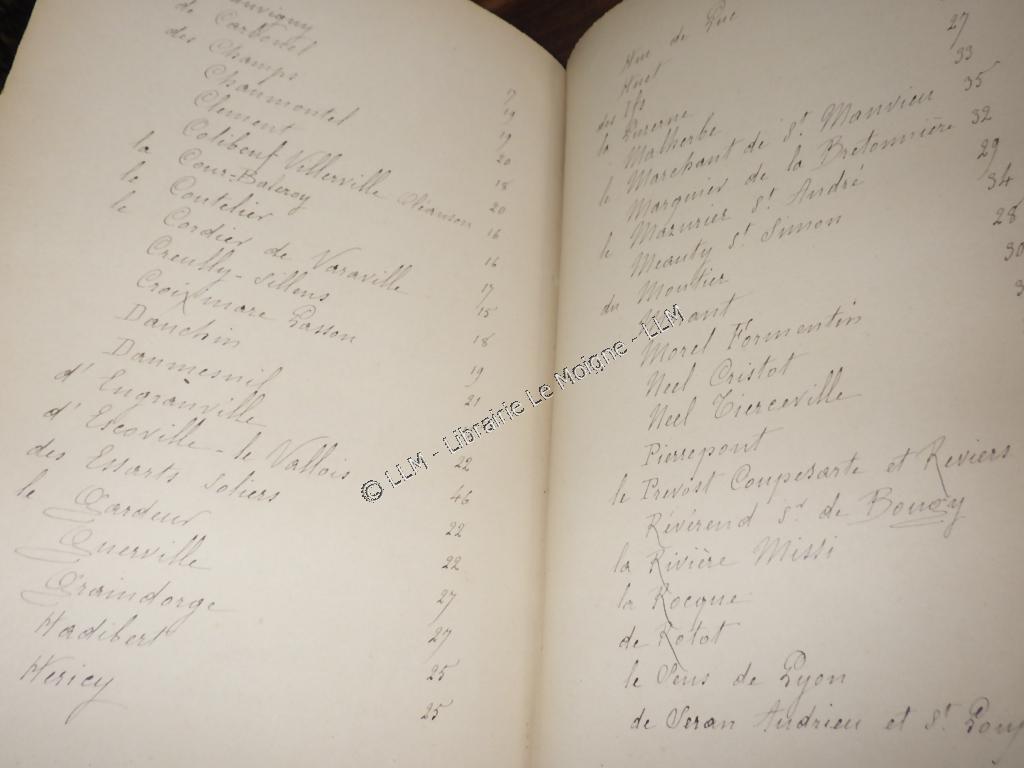 de Carbonnel
des Champs 7
Chaumontel 19
Clement 19
Colibeuf Villerville 20
la Cour-Balleroy 18
le Coutelier 20
le Cordier de Varaville 16
Creully-Sillens 16
Croixmare Lasson 17
Dauchin 15
Daumesnil 18
d'Engranville 19
d'Escoville-le Vallois 21
des Essarts Soliers 22
le Gardeur 46
Guerville 22
Graindorge 22
Hadibert 27
Hericy 27
25
25
Hue de 27
Huet 33
des Ifs 35
la Luzerne 32
Malherbe 29
le Marchant de St Manvieu 34
Marguier de la Bretonnière 28
le Maznier St André 30
Meauty St Simon
du Moutier
Morant
Morel Formentin
Neel Cristot
Neel Tierceville
Pierrepont
le Prevost Coupesarte et Reviers
Révérend Sr de Bougy
la Rivière Missi
la Rocque
de Rotot
le Sens de Lyon
de Seran Andrieu et St
© LLM - Librairie Le Moigne - LLM